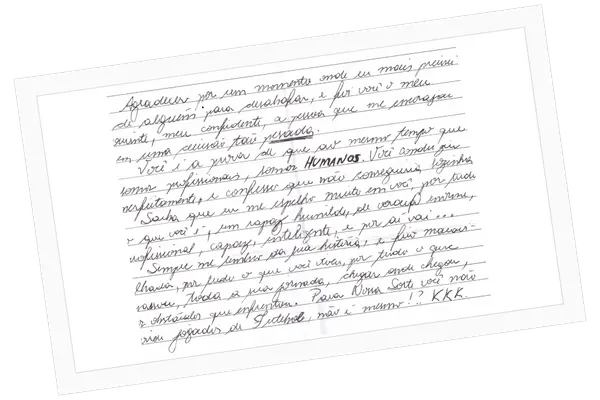 Agradecer por um momento onde eu mais precisei
de alguém para desabafar, e foi você o meu
ouvinte, meu confidente, a pessoa que me encorajou
em uma decisão tão pesada.
Você é a prova de que ao mesmo tempo que
somos profissionais, somos HUMANOS. Você conduziu
perfeitamente, e confesso que não conseguiria sozinha
Saiba que eu me espelho muito em você, por tudo
o que você é, um rapaz humilde, de coração enorme,
profissional, capaz, inteligente, e por aí vai...
Sempre me lembro da sua história, e fico maravi-
lhada, por tudo o que você viveu, por tudo o que
passou, toda a sua jornada, chegar onde chegou,
e obstáculos que enfrentou. Para Nossa Sorte você não
virou jogador de Futebol, não é mesmo!? KKK.